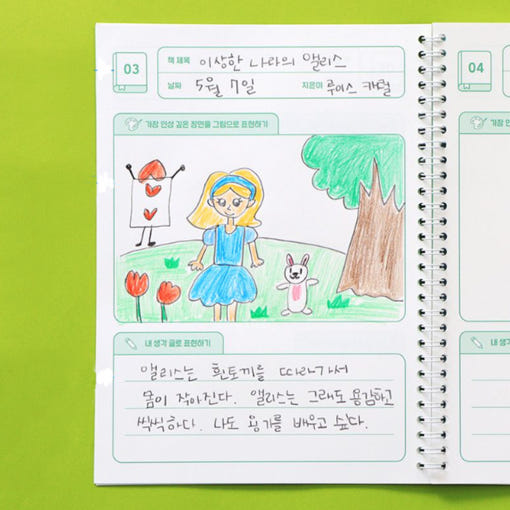 03
책 제목 이상한 나라의 앨리스
날짜 5월 7일 지은이 루이스 캐럴
가장 인상 깊은 장면을 그림으로 표현하기
내 생각 글로 표현하기
앨리스는 흰토끼를 따라가서
몸이 작아진다. 앨리스는 그래도 용감하고
씩씩하다. 나도 용기를 배우고 싶다.
04
가장 인
내 생각